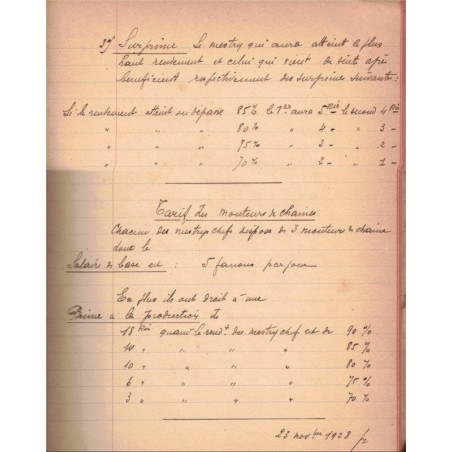 3/ Surprime  Le mestry qui aura atteint le plus
haut rendement et celui qui vient de suite après
bénéficient respectivement des surprimes suivantes:
Si le rendement atteint ou dépasse 85% le 1er aura 5 le second 4
" " " 80% " 4 " " 3 "
" " " 75% " 3 " " 2 "
" " " 70% " 2 " " 1 "
Tarif des monteurs de chaines
Chacun des mestrys chefs dispose de 3 monteurs de chaine
dont le
Salaire de base est : 5 fanons par jour
En plus ils ont droit à une
Prime à la production de
18 quand le rendt. des mestry chef est de 90%
14 " " " 85%
10 " " " 80%
6 " " " 75%
3 " " " 70%
23 novbre 1928